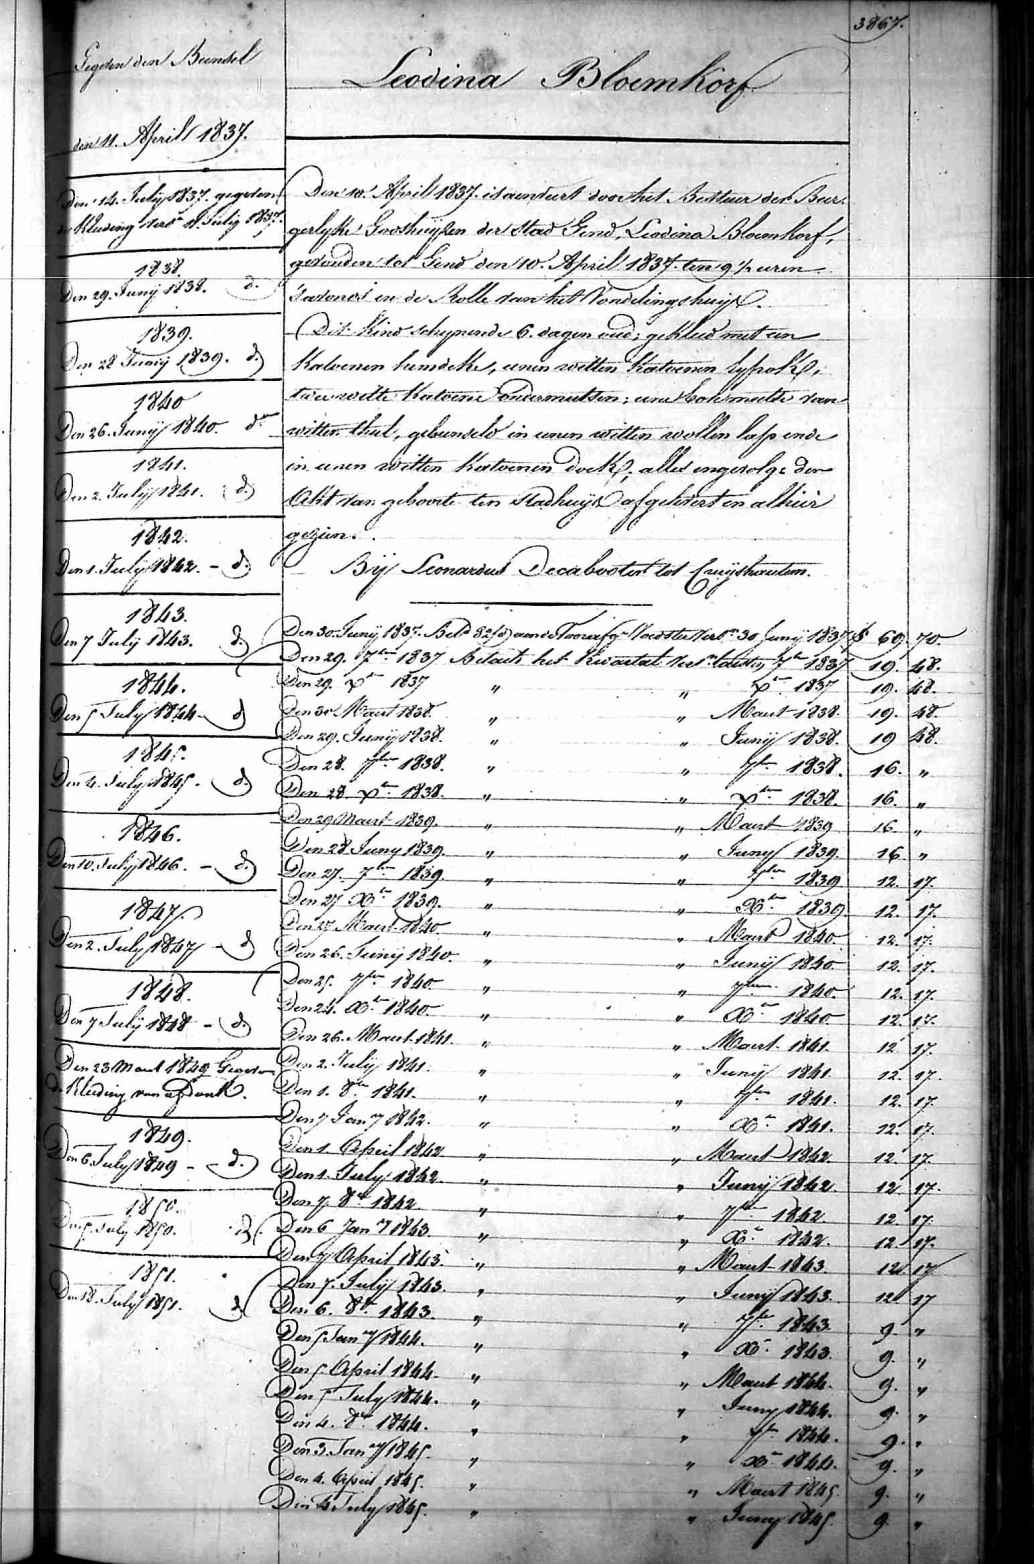 3867.
Gegeven den Bundel
den 11. April 1837.
Den 14. Julij 1837. gegeven
de Kleeding verv n Julij 1837.
1838.
Den 29. Junij 1838. d.
1839.
Den 28 Junij 1839. d.
1840
Den 26. Junij 1840. do
1841.
Den 2. Julij 1841. d.
1842.
Den 1. Julij 1842. - d.
1843.
Den 7 Julij 1843. d.
1844.
Den 5 July 1844 - d
1845.
Den 4. July 1845. - d.
1846.
Den 10. July 1846. - d.
1847.
Den 2. July 1847 - d
1848.
Den 7 Julij 1848 - d.
Den 23 Maart 1849 Gegeven
de Kleeding van afdank.
1849.
Den 6. July 1849 - d.
1850.
Den 5. July 1850. d.
1851.
Den 18. July 1851. d.
Leodina Bloemkorf
Den 10. April 1837. is aenveert door het Bestuer der Bur-
gerlyke Godshuyzen der stad Gend, Leodina Bloemkorf,
gevonden tot Gend den 10. April 1837. ten 9 ½ uren
s'avonds in de Rolle van het Vondelingshuys.
Dit kind schynende 6. dagen oud; gekleed met een
katoenen hemdeke, eenen witten katoenen lyfrok,
twee witte katoene ondermutsen; eene bovenmutse van
witten thul, gebunseld in eenen witten wollen lap ende
in eenen witten katoenen doek, alles ingevolge den
Akt van geboorte ten stadhuyze afgelevert en alhier
gezien.
Bij Leonardus Decabooter tot Cruyshoutem.
Den 30. Junij 1837. Betd 82 d aen de Voorafge Voedster verv 30 Junij 1837 f 69. 70.
Den 29. 7ber 1837 Betaelt het Kwartael verv lasten 7ber 1837 19. 48.
Den 29. Xber 1837 " " Xber 1837 19. 48.
Den 30. Maert 1838. " " Maert 1838. 19. 48.
Den 29. Junij 1838. " " Junij 1838. 19 48.
Den 28. 7ber 1838. " " 7ber 1838. 16. "
Den 28. Xber 1838. " " Xber 1838. 16. "
Den 29 Maert 1839. " " Maert 1839 16. "
Den 28 Juny 1839. " " Juny 1839. 16. "
Den 27. 7ber 1839 " " 7ber 1839 12. 17.
Den 27 Xber 1839. " " Xber 1839 12. 17.
Den 27 Maert 1840 " " Maert 1840. 12. 17.
Den 26. Junij 1840. " " Junij 1840. 12. 17.
Den 25. 7ber 1840 " " 7ber 1840. 12. 17.
Den 24. Xber 1840 " " Xber 1840. 12. 17.
Den 26. Maert 1841. " " Maert 1841. 12. 17.
Den 2. Julij 1841. " " Junij 1841 12. 17.
Den 1. 8ber 1841. " " 7ber 1841. 12. 17.
Den 7 Jany 1842. " " Xber 1841. 12. 17.
Den 1. April 1842 " " Maert 1842. 12 17.
Den 1. July 1842. " " Junij 1842. 12 17.
Den 7. 8ber 1842. " " 7ber 1842 12. 17.
Den 6 Jany 1843. " " Xber 1842. 12. 17.
Den 7 April 1843. " " Maert 1843 12 17
Den 7. July 1843. " " Junij 1843. 12 17
Den 6. 8ber 1843. " " 7ber 1843 9. "
Den 5 Jany 1844. " " Xber 1843. 9. "
Den 5. April 1844. " " Maert 1844. 9. "
Den 5 July 1844. " " Juny 1844. 9. "
Den 4. 8ber 1844. " " 7ber 1844. 9. "
Den 3. Jany 1845. " " Xber 1844. 9. "
Den 4. April 1845. " " Maert 1845. 9. "
Den 4 July 1845. " " Juny 1845. 9. "